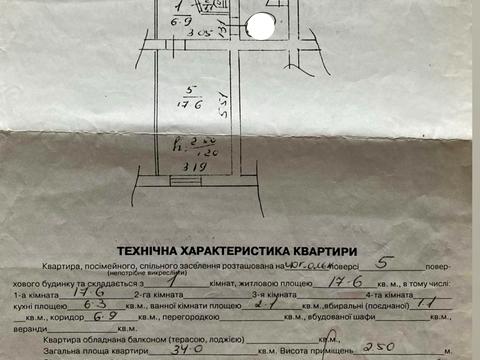 1
6.9
3.05
131
5
17.6
551
h: 2.50
1.20
319
ТЕХНІЧНА ХАРАКТЕРИСТИКА КВАРТИРИ
Квартира, посімейного, спільного заселення розташована на поверсі 5 повер-
(непотрібне викреслити)
хового будинку та складається з 1 кімнат, житловою площею 17.6 кв. м., в тому числі:
1-а кімната 17.6 2-га кімната 3-я кімната 4-та кімната
кухні площею 6.3 кв. м., ванної кімнати площею 2.1 кв. м., вбиральні (поєднаної) 1.1
кв. м., коридор 6.9 кв. м., перегородкою кв. м., вбудованої шафи кв. м.,
веранди кв. м.
Квартира обладнана балконом (терасою, лоджією) кв. м.
Загальна площа квартири 34.0 кв.м. Висота приміщень 250 м.